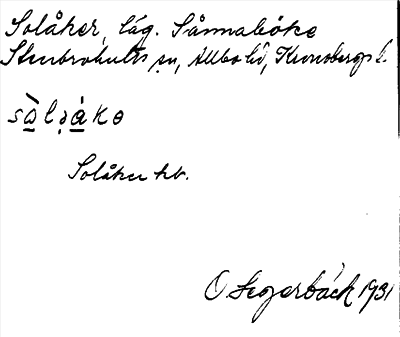 Solåker, läg. Sånnaböke
Stenbrohults sn, Allbo hd, Kronobergs l.
sòləákə
Solåker kv.
O Segerbäck 1931